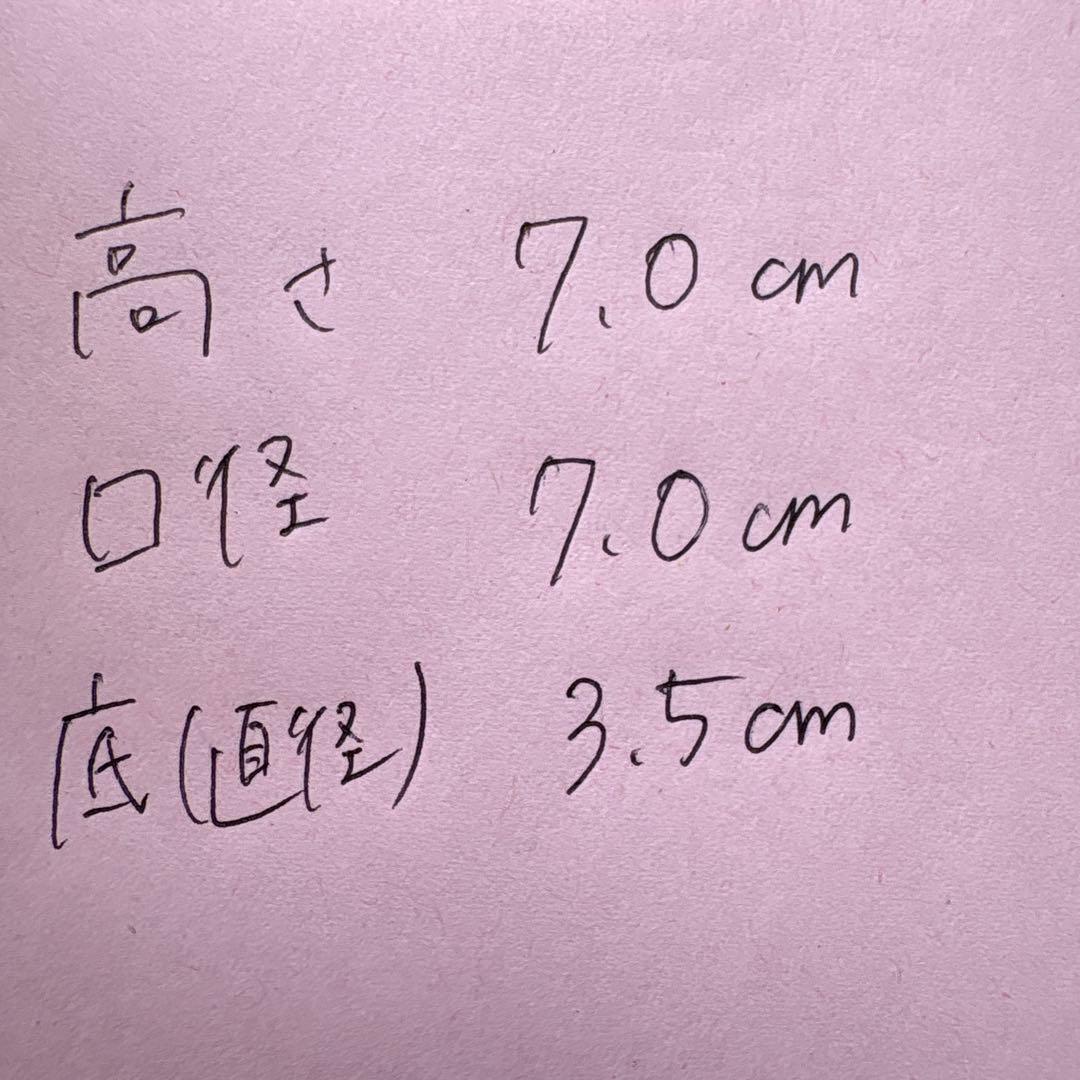 高さ 7.0cm
口径 7.0cm
底(直径) 3.5cm